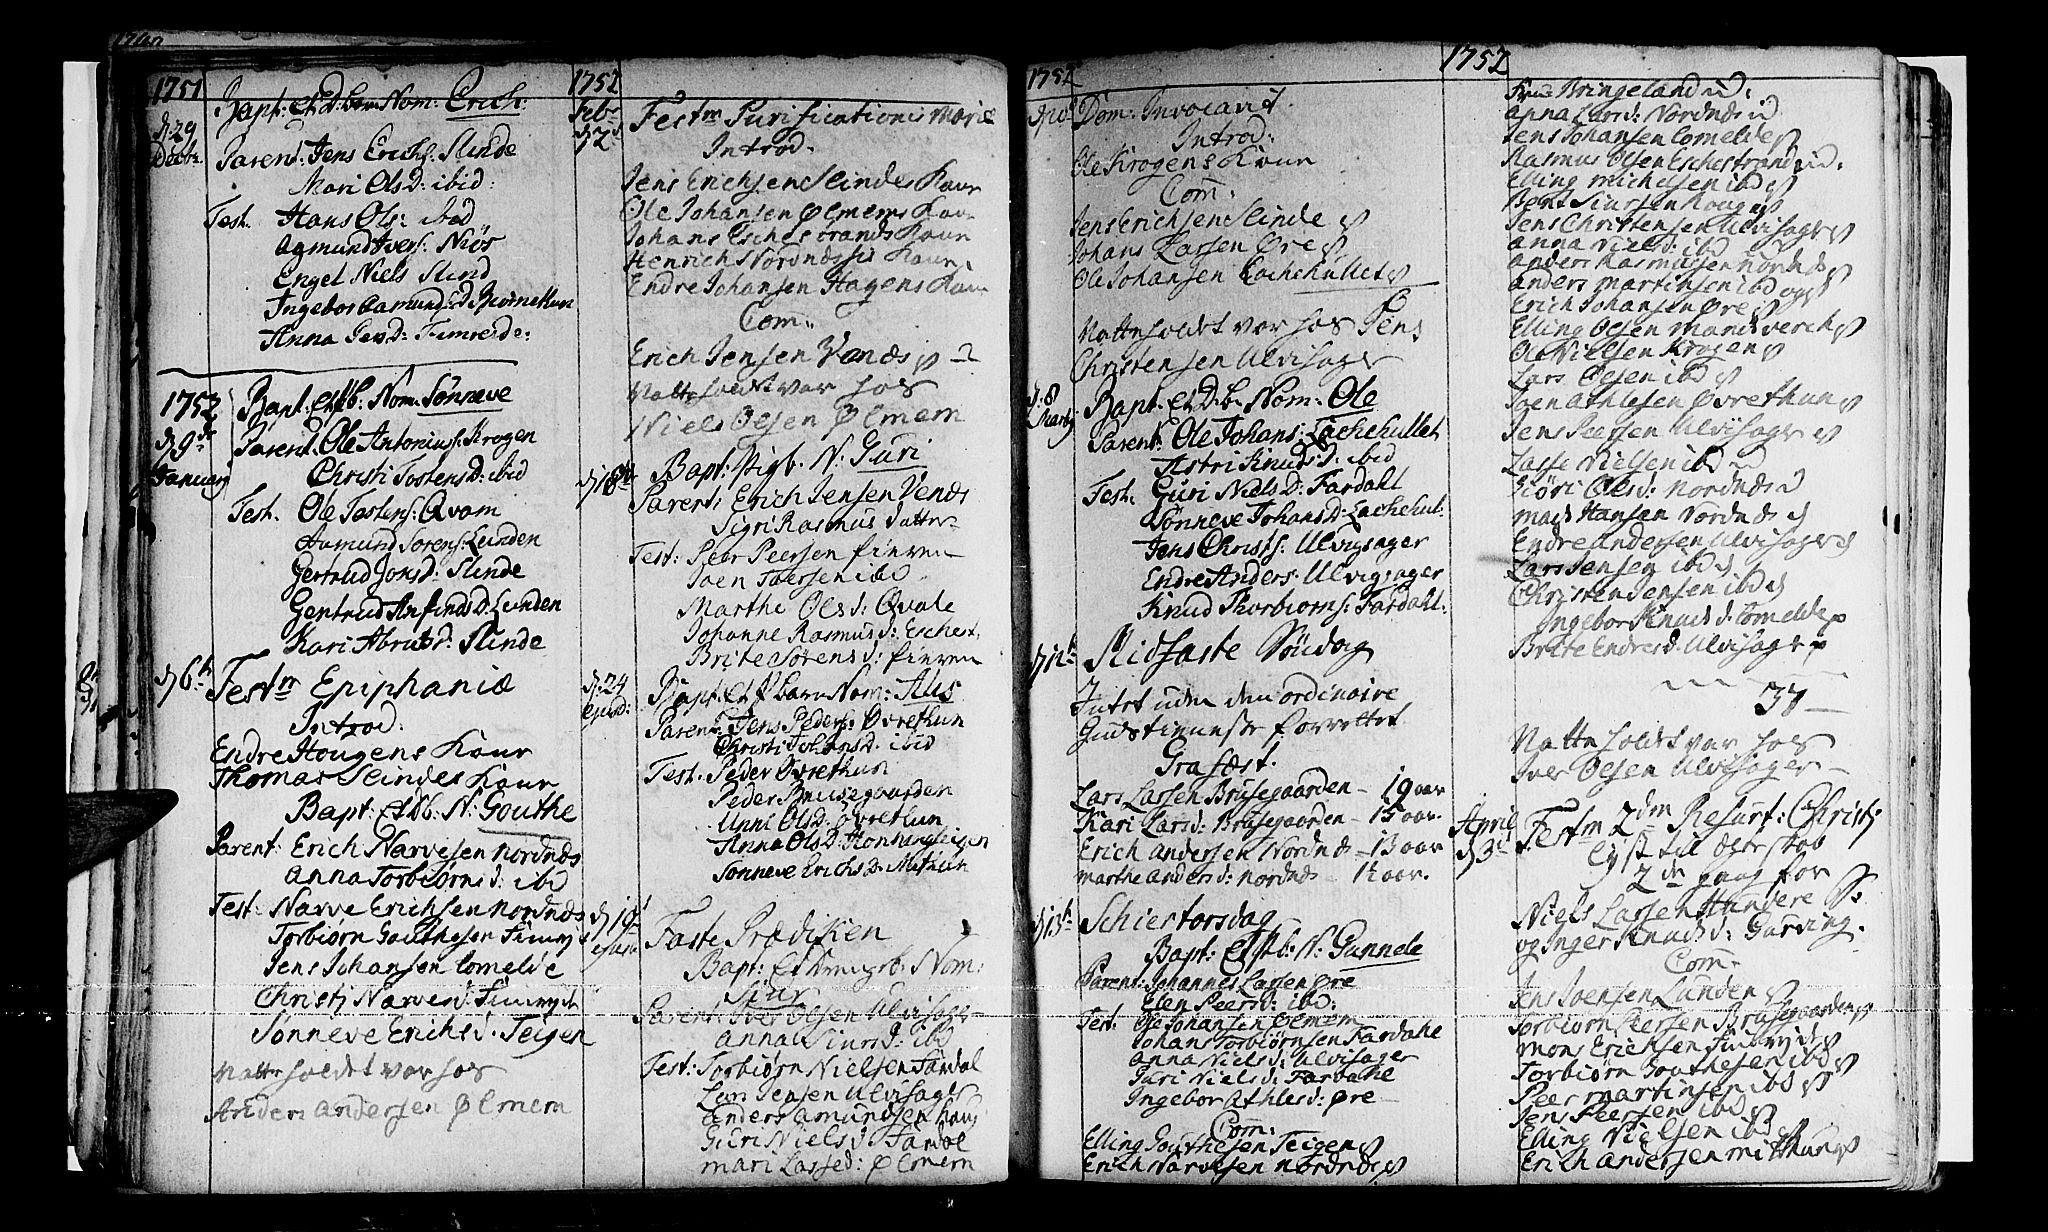 1751
d. 29 Decbr. Bapt. et D.barn Nom: Erich:
Parent: Jens Erichs: Slinde
Mari OlsD: ibid:
Test. Hans Ols: ibid
Aamund Ivers: Niøs
Engel Niels Slind
Ingebor Aamunds D.
Anna D: Timreide:
1752 Bapt. et b. Nom. Sønneve
d. 9de Parent. Ole Antonius: Krogen
Januarij Christi TostensD: ibid
Test. Ole Tostens: Qvam
Aamund Sorens: Lunden
Gertrud Jonsd: Slinde
Gertrud AnfindsD. Lunden
Kari Slinde
d. 6t Festm Epiphaniæ
Introd.
Endre Hougens Kone
Thomas Slindes Kone
Bapt: et b: N: Gouthe
Parent: Erich Narvesen Nordnæs
Anna Torbiørns d: ibd
Test: Narve Erichsen Nordnæs
Torbiørn Gouthesen Timreit
Jens Johansen Comelde
Christj Narves d: Timreit
Sønneve Erichs d. Teigen
Natte holdt var hos
Anders Andersen Ølmem
1752
Febr. d. 2d Festm Purificationis Mariæ
Introd.
Jens Erichsen Slindes Kone
Ole Johansen Ølmems Kone
Johans Eschestrands Kone
Henrich Nordnæssis Kone
Endre Johansen Hagens Kone
Com:
Erich Jensen Venæs
Natte holdt var hos
Niels Olsen Ølmem
d. 18 Bapt: Pigb. N: Guri
Parent: Erich Jensen Venæs
Sigri Rasmus datter
Test: Peer Peersen Finven
Joen Iversen ibd
Marthe Ols d: Qvale
Johanne Rasmus d: Eschest.
Brite Sørens d: Finven
d. 24 ejusd: Bapt: et barn Nom: Aus
Parent: Jens Peders: Øvrethun
Christi JohansD. ibid
Test. Peder Øvrethun
Peder Brusegaarden
Unni OlsD: Øvrethun
Anna OlsD:
Sønneve ErichsD.
d. 19 Faste Prædicken
Bapt: et b: Nom:
Siur
Parent: Iver Olsen Ulvisager
Anna Siurs D: ibd
Test: Torbiørn Nielsen Fardal
Jensen Ulvisager
Anders Amundsen Houg
Guri Niels d. Fardal
Mari Lasse d: Ølmem
1752
Dom: Invocavit.
Introd:
Ole Krogens Kone
Com:
Jens Erichsen Slinde
Johans Larsen Øre
Ole Johansen Lachehullet
Natte holdt var hos Jens
Christensen Ulvisager
d. 8 Martij Bapt. et D.b. Nom: Ole
Parent: Ole Johans: Lachehullet
Astri Knuds D: ibid
Test. Guri Niels D: Fardahl
Sønneve JohansD: Lachehul:
Jens Christs: Ulvigsager
Endre Anders: Ulvigsager
Knud Thorbiørns: Fardahl:
d. 12t Midfaste Søndag
Intet uden den ordinaire
Gudstienneste forrettet
Grafæst.
Lars Larsen Brusegaarden - 19 aar
Kari Larsd: Brusegaarden - 15 aar.
Erich Andersen Nordnæs - 13 aar
Marthe Anders d: Nordnæs - 12 aar.
Schiertorsdag
Bapt: et b. N: Gunnele
Parent: Johannes Larsen Øre
Elen Peers d: ibd:
Test. Ole Johansen Ølmem
Johans Torbiørnsen Fardahl
Anna Niels d: Ulvisager
Guri Niels d: Fardahl
Ingebor Athles d: Øre
Com:
Elling Gouthesen Teigen
Erich Narvesen Nordnæs
1752
Bringeland
Anna Lars d: Nordnæs
Jens Johansen Comelde
Rasmus Olsen Eschestrand
Elling Michelsen ibd
Bent Siursen Houg
Jens Christensen Ulvisager
Anna Niels d: ibd
Anders Rasmussen Nordnæs
Anders Martinsen ibd
Erich Johansen Øre
Elling Olsen
Ole Nielsen Krogen
Lars Olsen ibd
Joen Athlesen Øvrethun
Jens Peersen Ulvisager
Lasse Nielsen ibd
Kiøri Ols d: Nordnæs
Mads Hansen Nordnæs
Endre Andersen Ulvisager
Lars Jensen ibd
Christen Jensen ibd
Ingebor Knuds d. Comelde
Brite Endres d. Ulvisager
37
Natte holdt var hos
Iver Olsen Ulvisager
April d. 3d Festm 2dm Resurt: Christj
Lyst til ægteskab
2de gang for
Niels Larsen Hundere S:
og Inger Knuds d: Gurving.
Com:
Jens Joensen Lunden
Torbiørn Peersen Brusegaarden
Mons Erichsen Timreit
Torbiørn Gouthesen ibd
Peer Martinsen ibd
Jens Peersen ibd
Elling Nielsen ibd
Erich Andersen Mitthun